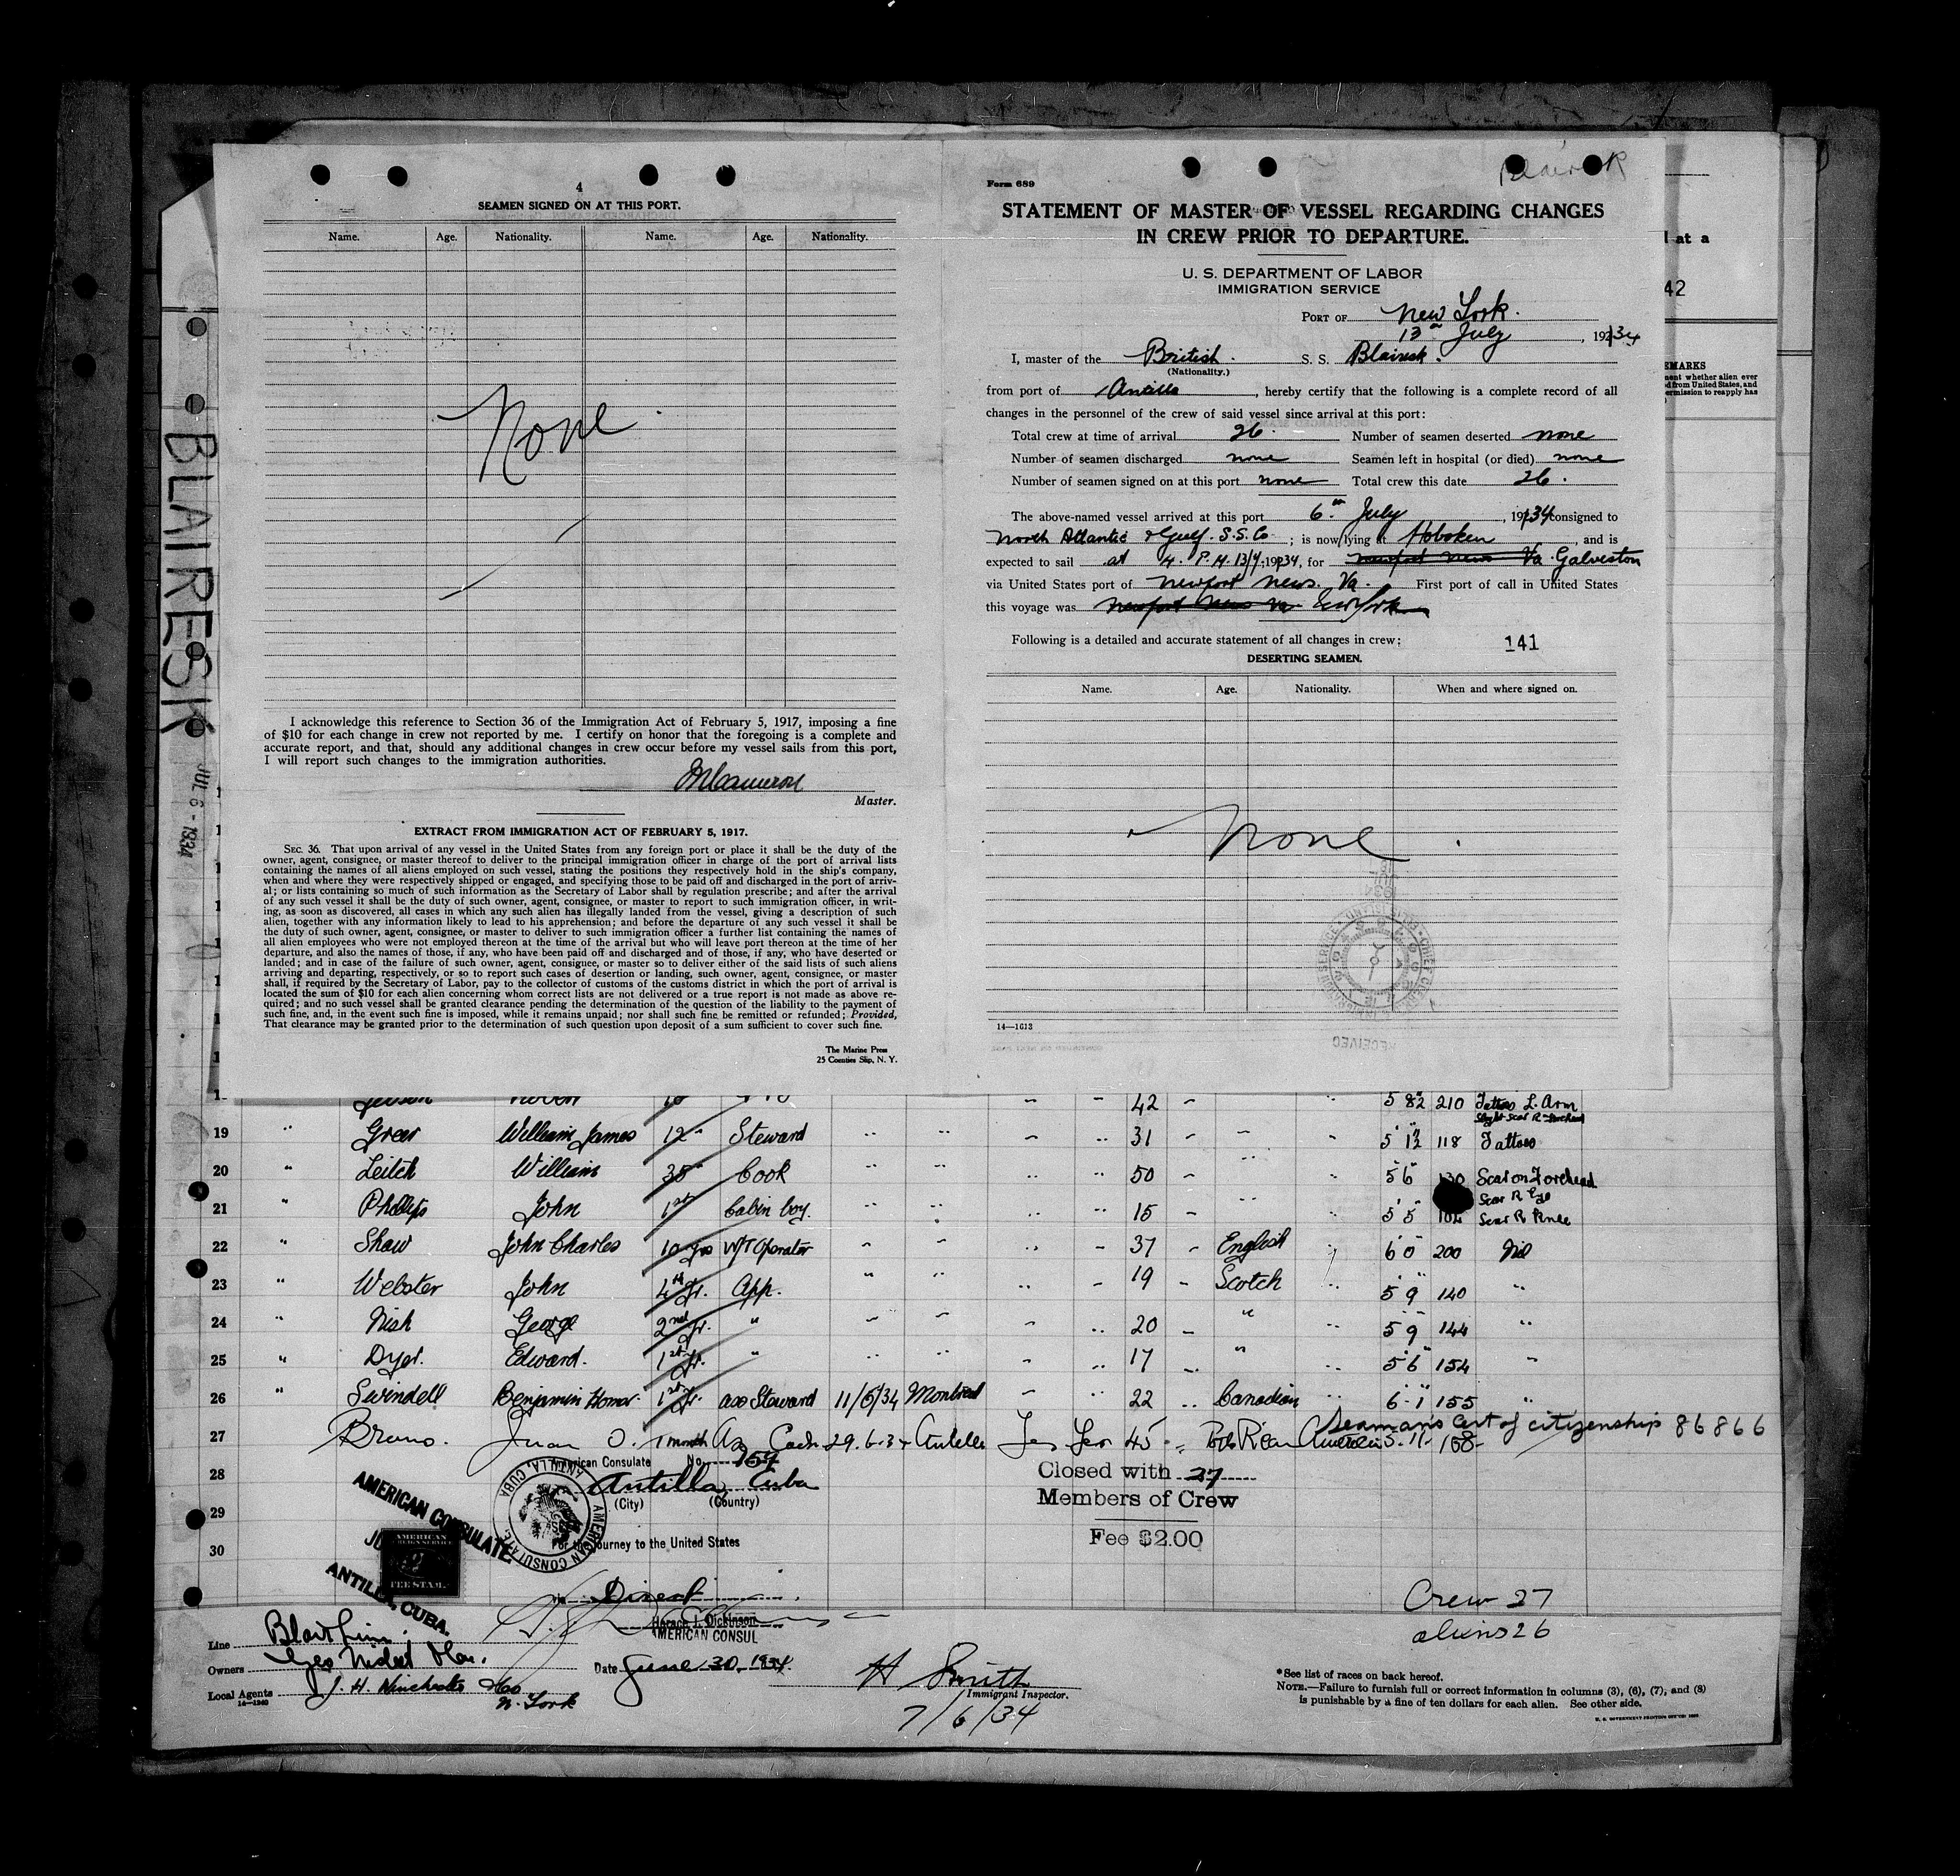 4
SEAMEN SIGNED ON AT THIS PORT.
Name. Age. Nationality. Name. Age. Nationality.
None
I acknowledge this reference to Section 36 of the Immigration Act of February 5, 1917, imposing a fine
of $10 for each change in crew not reported by me. I certify on honor that the foregoing is a complete and
accurate report, and that, should any additional changes in crew occur before my vessel sails from this port,
I will report such changes to the immigration authorities.
Cameron
Master.
EXTRACT FROM IMMIGRATION ACT OF FEBRUARY 5, 1917.
SEC. 36. That upon arrival of any vessel in the United States from any foreign port or place it shall be the duty of the
owner, agent, consignee, or master thereof to deliver to the principal immigration officer in charge of the port of arrival lists
containing the names of all aliens employed on such vessel, stating the positions they respectively hold in the ship's company,
when and where they were respectively shipped or engaged, and specifying those to be paid off and discharged in the port of arriv-
al; or lists containing so much of such information as the Secretary of Labor shall by regulation prescribe; and after the arrival
of any such vessel it shall be the duty of such owner, agent, consignee, or master to report to such immigration officer, in writ-
ing, as soon as discovered, all cases in which any such alien has illegally landed from the vessel, giving a description of such
alien, together with any information likely to lead to his apprehension; and before the departure of any such vessel it shall be
the duty of such owner, agent, consignee, or master to deliver to such immigration officer a further list containing the names of
all alien employees who were not employed thereon at the time of the arrival but who will leave port thereon at the time of her
departure, and also the names of those, if any, who have been paid off and discharged and of those, if any, who have deserted or
landed; and in case of the failure of such owner, agent, consignee, or master so to deliver either of the said lists of such aliens
arriving and departing, respectively, or so to report such cases of desertion or landing, such owner, agent, consignee, or master
shall, if required by the Secretary of Labor, pay to the collector of customs of the customs district in which the port of arrival is
located the sum of $10 for each alien concerning whom correct lists are not delivered or a true report is not made as above re-
quired; and no such vessel shall be granted clearance pending the determination of the question of the liability to the payment of
such fine, and, in the event such fine is imposed, while it remains unpaid; nor shall such fine be remitted or refunded; Provided,
That clearance may be granted prior to the determination of such question upon deposit of a sum sufficient to cover such fine.
The Marine Press
25 Coenties Slip, N. Y.
Blairesk
Form 689
STATEMENT OF MASTER OF VESSEL REGARDING CHANGES
IN CREW PRIOR TO DEPARTURE.
U. S. DEPARTMENT OF LABOR
IMMIGRATION SERVICE
PORT OF New York.
13th July, 1934
I, master of the British. S. S. Blairesk.
(Nationality.)
from port of Antilla, hereby certify that the following is a complete record of all
changes in the personnel of the crew of said vessel since arrival at this port:
Total crew at time of arrival 26. Number of seamen deserted none
Number of seamen discharged none Seamen left in hospital (or died) none
Number of seamen signed on at this port none Total crew this date 26.
The above-named vessel arrived at this port 6th July, 1934 consigned to
North Atlantic & Gulf. S.S. Co; is now lying at Hoboken, and is
expected to sail at 4. P.M. 13/7, 1934, for Newport News Va. Galveston
via United States port of Newport News. Va. First port of call in United States
this voyage was Newport News Va. New York
Following is a detailed and accurate statement of all changes in crew: 141
DESERTING SEAMEN.
Name. Age. Nationality. When and where signed on.
None.
14—1613
RECEIVED
d at a
42
EMARKS
BLAIRESK
JUL 6 - 1934
42 5 8½ 210 Tattoo L. Arm
Slight scar R forehead
19 " Greer William James 12 " Steward 31 5 1½ 118 Tattoos
20 " Leitch William 35 " Cook 50 5 6 130 Scar on Forehead
21 " Phillips John 1st Cabin boy. 15 5 5 102 Scar R Eye
Scar R Knee
22 " Shaw John Charles 10 yrs W/T Operator 37 English 6 0 200 Nil
23 " Webster John 4th Yr. App. 19 Scotch 5 9 140 "
24 " Nish George 2nd Yr. " 20 " 5 9 144 "
25 " Dyer. Edward. 1st Yr. " 17 " 5 6 154 "
26 " Swindell Benjamin Homer 1st Yr. ass Steward 11/6/34 Montreal 22 Canadian 6 1 155 "
27 Bruno. Juan O. 1 month As Cook 29.6.34 Antilla Yes Yes 45 " Porto Rican American 5.11 168 Seamans Cert of citizenship 86866
28 American Consulate No. 157
Antilla, Cuba
(City) (Country)
29
For the journey to the United States
30
Direct
AMERICAN CONSULATE
ANTILLA, CUBA.
AMERICAN CONSULATE ANTILLA, CUBA
AMERICAN
FOREIGN SERVICE
2
FEE STAMP
Horace J. Dickinson
AMERICAN CONSUL
Closed with 27
Members of Crew
Fee $2.00
Crew 27
aliens 26
Line Blair Line.
Owners Geo Nisbet
Local Agents J. H. Winchester & Co
N. York
14—1240
Date June 30, 1934.
H Smith
Immigrant Inspector.
7/6/34
*See list of races on back hereof.
NOTE.—Failure to furnish full or correct information in columns (3), (6), (7), and (8)
is punishable by a fine of ten dollars for each alien. See other side.